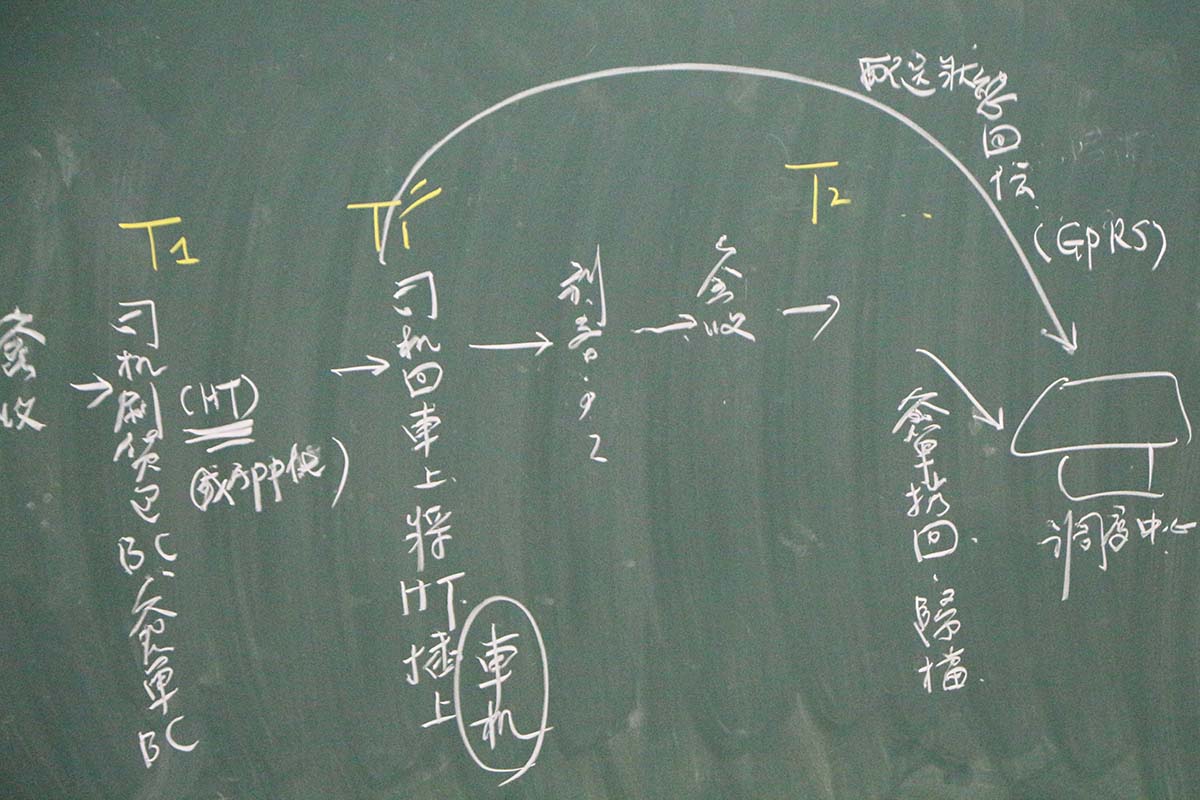 簽收
T1
司机刷貨包BC、簽單BC
(HT)
(或APP使)
T1''
司机回車上將HT插上
車机
到
簽收
T2
配送狀態回信
(GPRS)
簽單携回、歸檔
调度中心